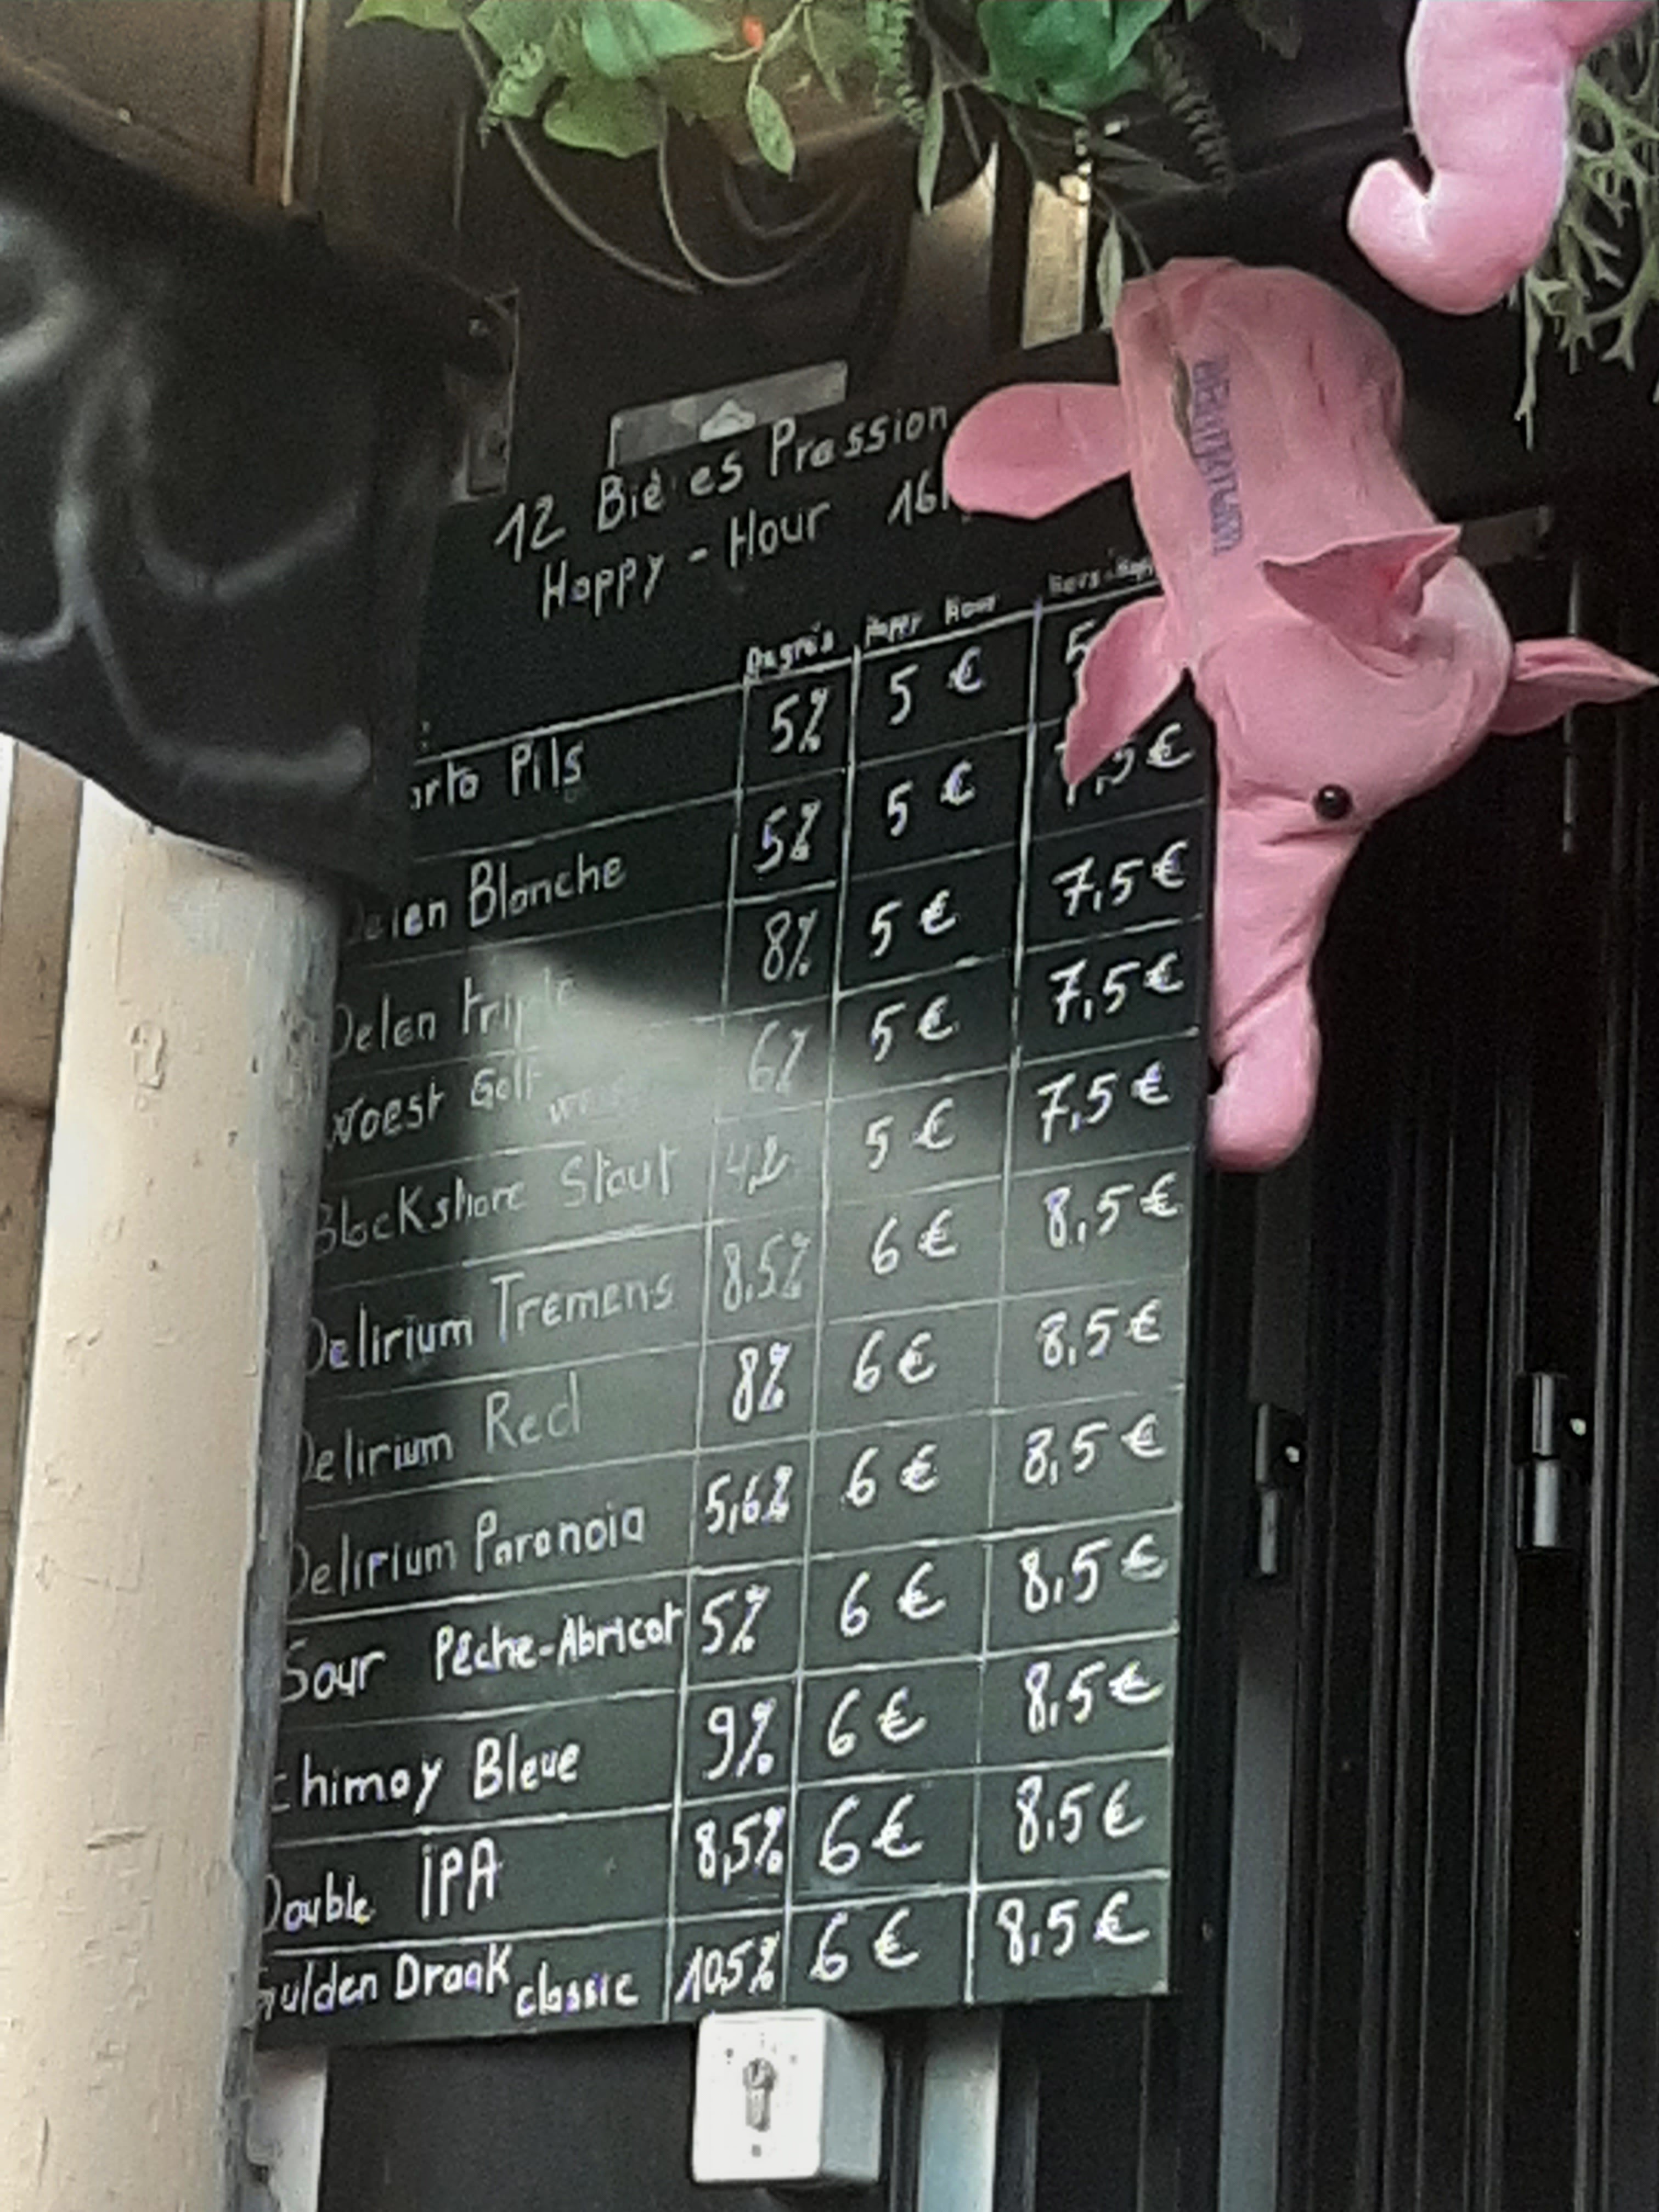 12 Biè es Pression
Happy-Hour 16h
Degrés Happy Hour Hors-Happy
Pils 5% 5 € 5
Blanche 5% 5 € 7,5 €
Delen triple 8% 5 € 7,5 €
Woest Golf 6% 5 € 7,5 €
Blackshore Stout 4,2 5 € 7,5 €
Delirium Tremens 8,5% 6 € 8,5 €
Delirium Red 8% 6 € 8,5 €
Delirium Paranoia 5,6% 6 € 8,5 €
Sour Pêche-Abricot 5% 6 € 8,5 €
Chimay Bleue 9% 6 € 8,5 €
Double IPA 8,5% 6 € 8,5 €
Gulden Draak classic 10,5% 6 € 8,5 €
DELIRIUM